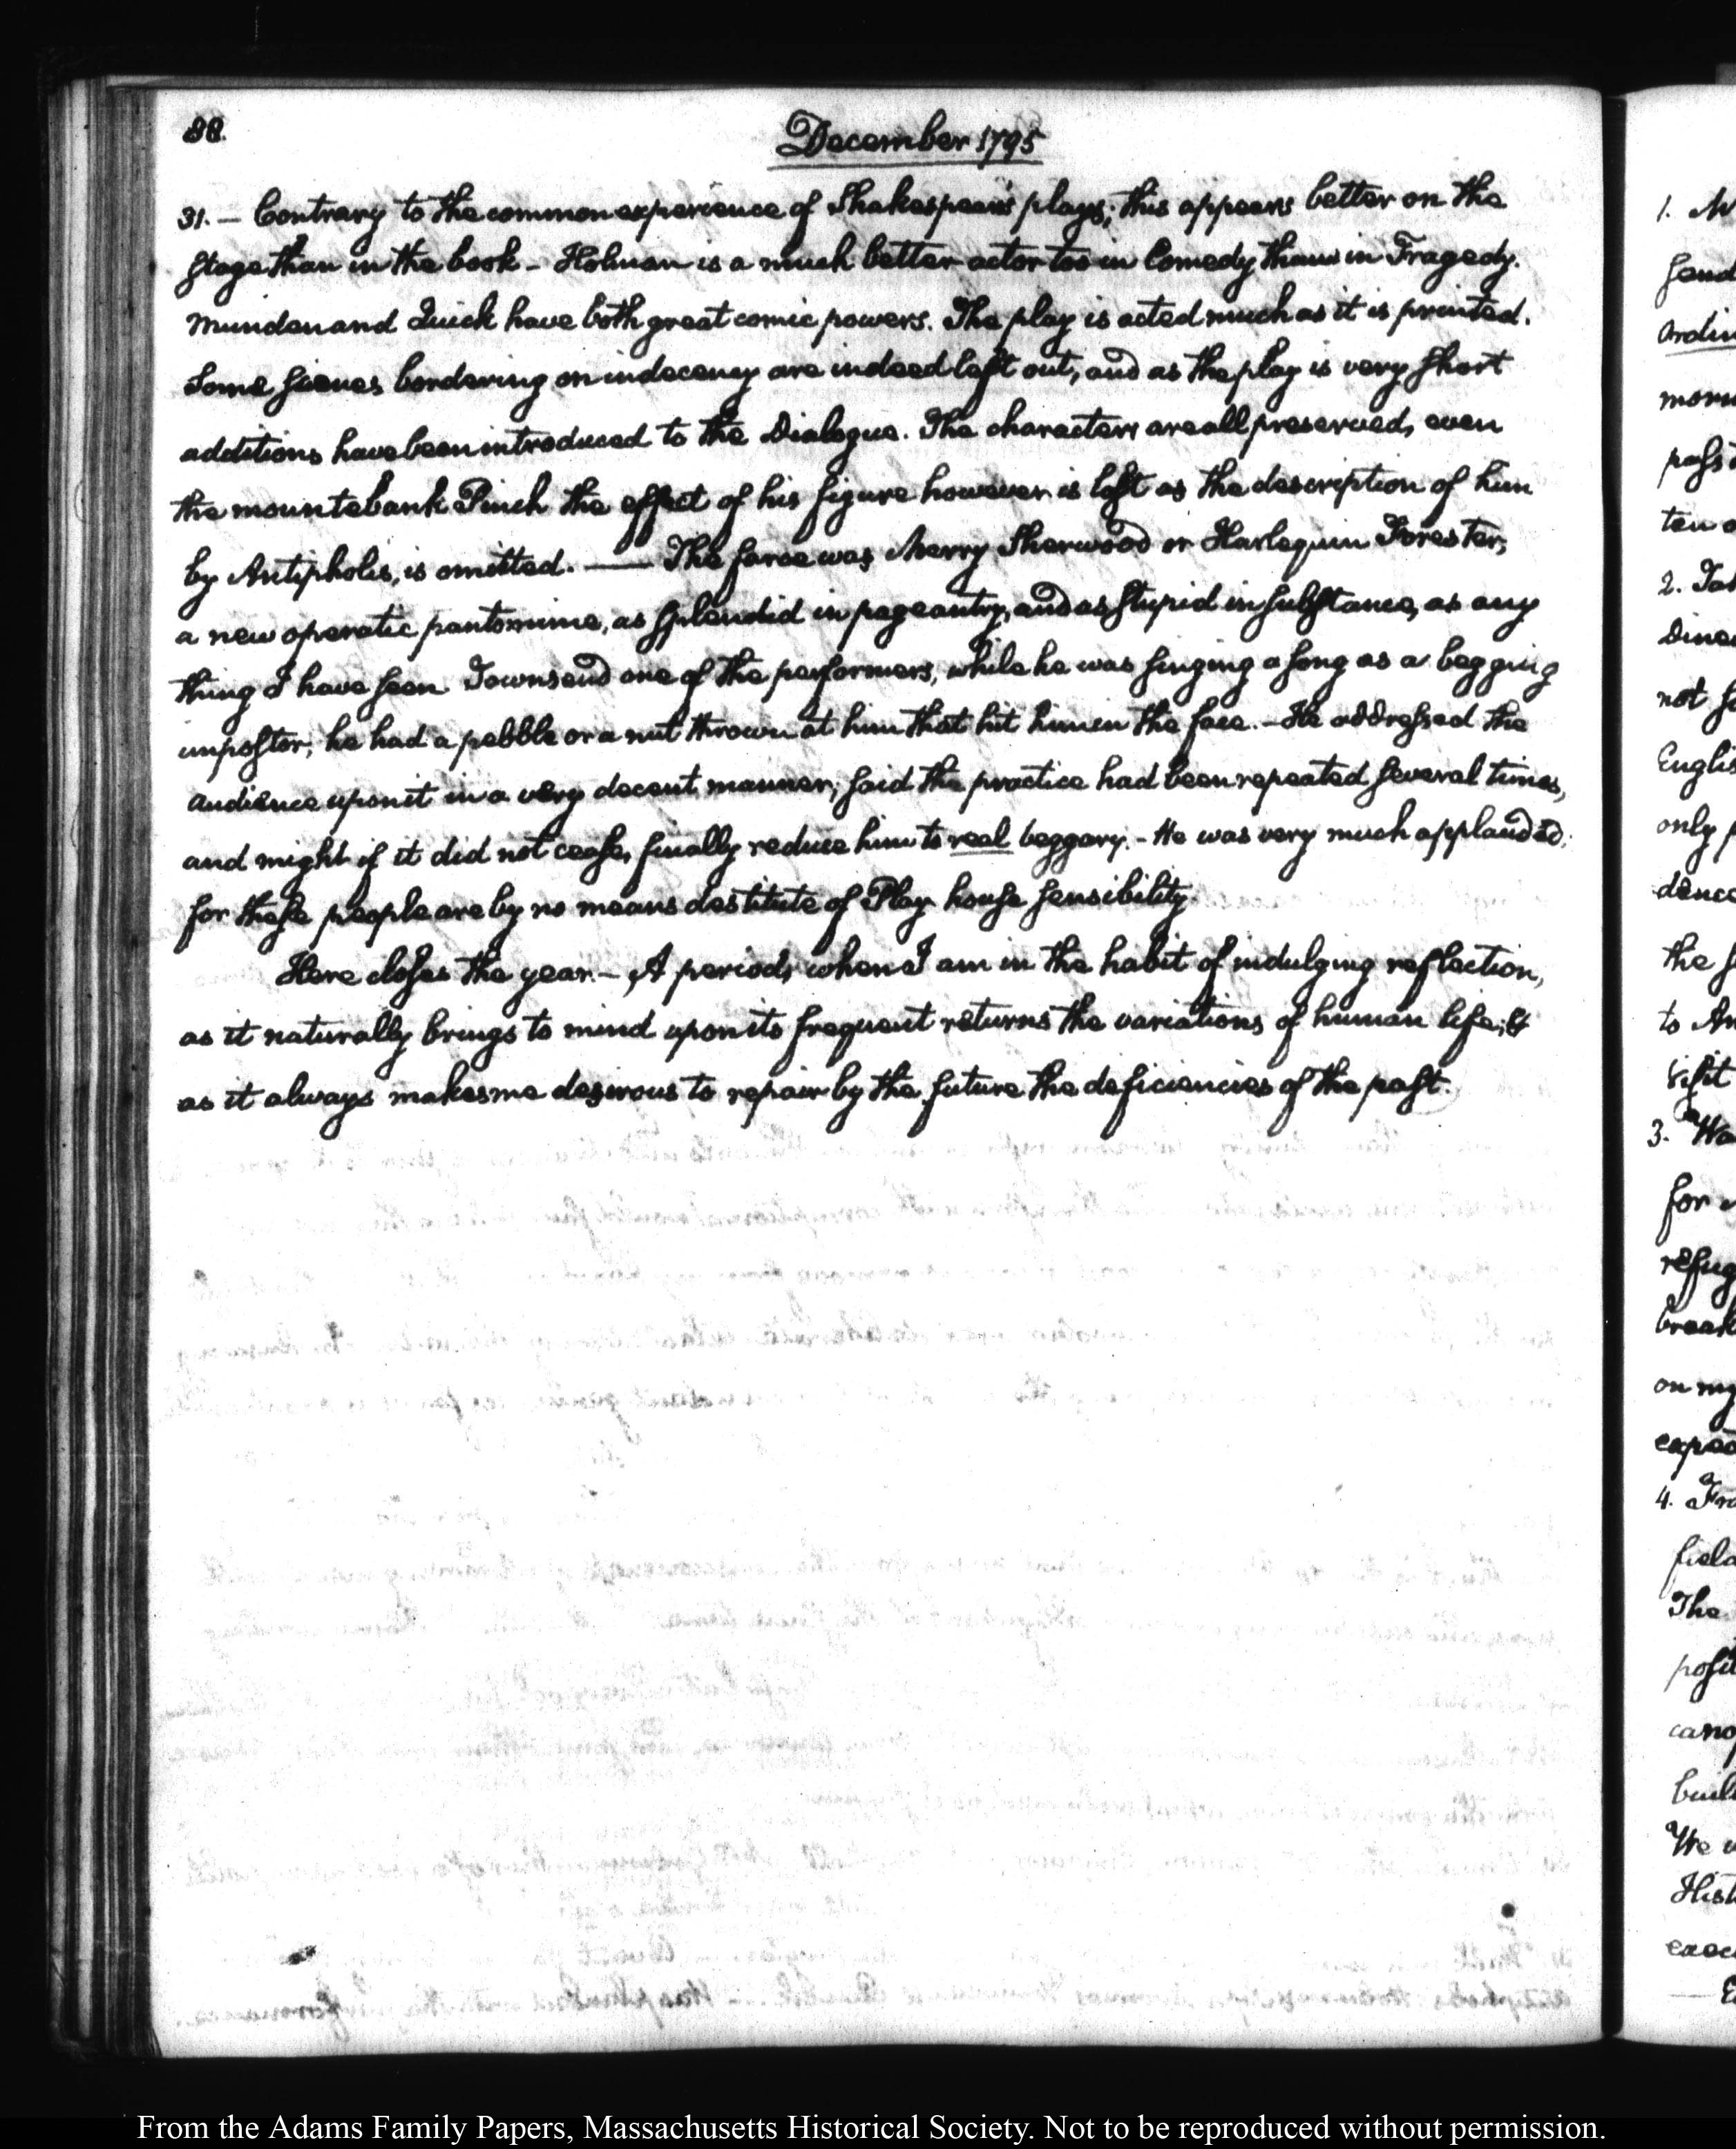 88.
December 1795
31. — Contrary to the common experience of Shakespear's plays; this appears better on the
stage than in the book – Holman is a much better actor too in Comedy than in Tragedy.
Munden and Quick have both great comic powers. The play is acted much as it is printed.
Some scenes bordering on indecency are indeed left out, and as the play is very short
additions have been introduced to the Dialogue. The characters are all preserved, even
the mountebank Pinch the effect of his figure however is lost as the description of him
by Antipholis, is omitted. —— The farce was Merry Sherwood or Harlequin Forester,
a new operatic pantomime, as splendid in pageantry, and as stupid in substance, as any
thing I have seen Townsend one of the performers, while he was singing a song as a begging
impostor; he had a pebble or a nut thrown at him that hit him in the face. – He addressed the
audience upon it in a very decent manner; said the practice had been repeated several times,
and might if it did not cease, finally reduce him to real beggary. – He was very much applauded;
for these people are by no means destitute of Play house sensibility.
Here closes the year. – A period, when I am in the habit of indulging reflection,
as it naturally brings to mind upon its frequent returns the variations of human life; &
as it always makes me desirous to repair by the future the deficiencies of the past.
1.
ordin
2.
Dines
not
Englis
only
dence
the
to
visit
3.
for
refug
break
on my
expec
4.
field
The
posit
built
We
Hist
From the Adams Family Papers, Massachusetts Historical Society. Not to be reproduced without permission.